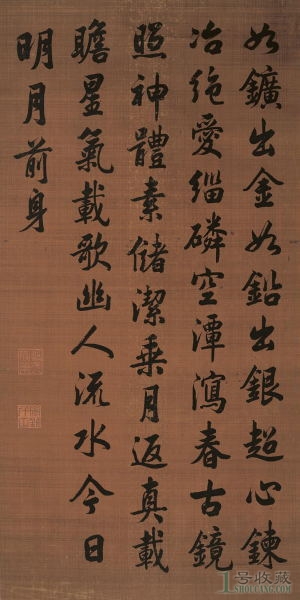 如鑛出金如鉛出銀超心鍊
冶絶愛緇磷空潭瀉春古鏡
照神體素儲潔乗月返真載
瞻星氣載歌幽人流水今日
明月前身
1号收藏